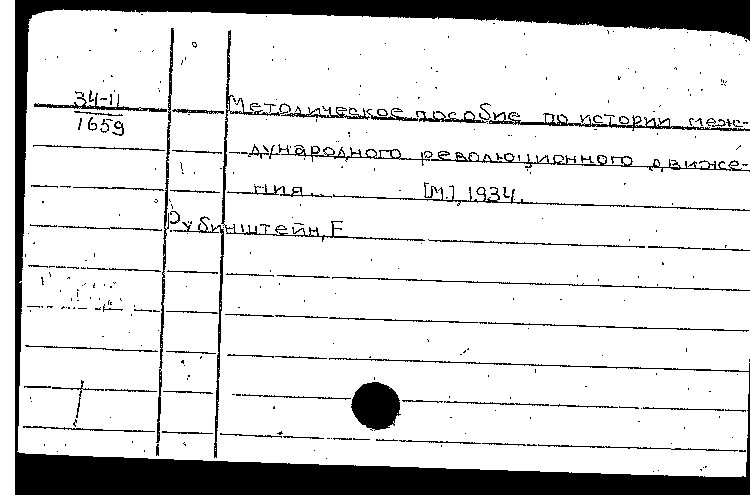 34-11
1659
Методическое пособие по истории меж-
дународного революционного движе-
ния... [М.], 1934.
Рубинштейн, Е